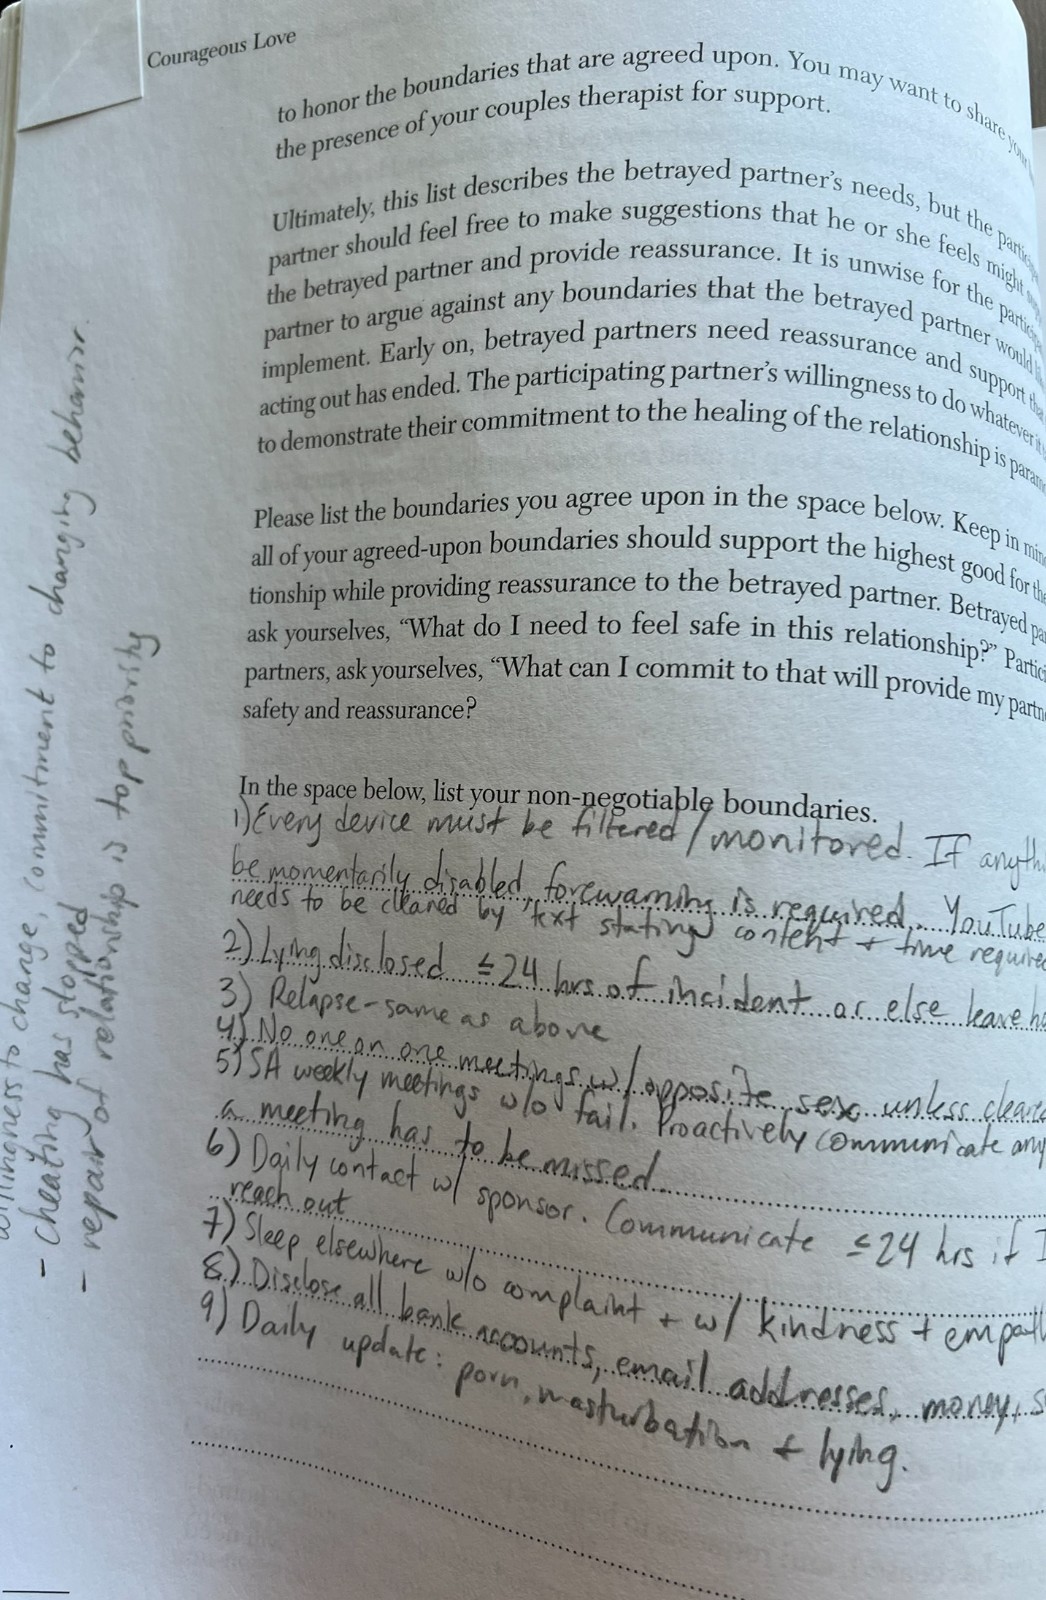 Courageous Love
to honor the boundaries that are agreed upon. You may want to share your
the presence of your couples therapist for support.
Ultimately, this list describes the betrayed partner's needs, but the
partner should feel free to make suggestions that he or she feels might
the betrayed partner and provide reassurance. It is unwise for the
partner to argue against any boundaries that the betrayed partner would
implement. Early on, betrayed partners need reassurance and support
acting out has ended. The participating partner's willingness to do whatever
to demonstrate their commitment to the healing of the relationship is
Please list the boundaries you agree upon in the space below. Keep in
all of your agreed-upon boundaries should support the highest good for
tionship while providing reassurance to the betrayed partner. Betrayed
ask yourselves, “What do I need to feel safe in this relationship?”
partners, ask yourselves, “What can I commit to that will provide my
safety and reassurance?
In the space below, list your non-negotiable boundaries.
1) Every device must be filtered / monitored. If
be momentarily disabled, forewarning is required. YouTube
needs to be cleared by text stating content + time required
2) Lying disclosed ≤ 24 hrs of incident or else leave
3) Relapse - same as above
4) No one on one meetings w/ opposite sex unless
5) SA weekly meetings w/o fail. Proactively communicate
a meeting has to be missed
6) Daily contact w/ sponsor. Communicate ≤ 24 hrs if I
reach out
7) Sleep elsewhere w/o complaint + w/ kindness +
8) Disclose all bank accounts, email addresses, money,
9) Daily update: porn, masturbation + lying.
willingness to change, commitment to changing behavior.
- cheating has stopped
- repair of relationship is top priority